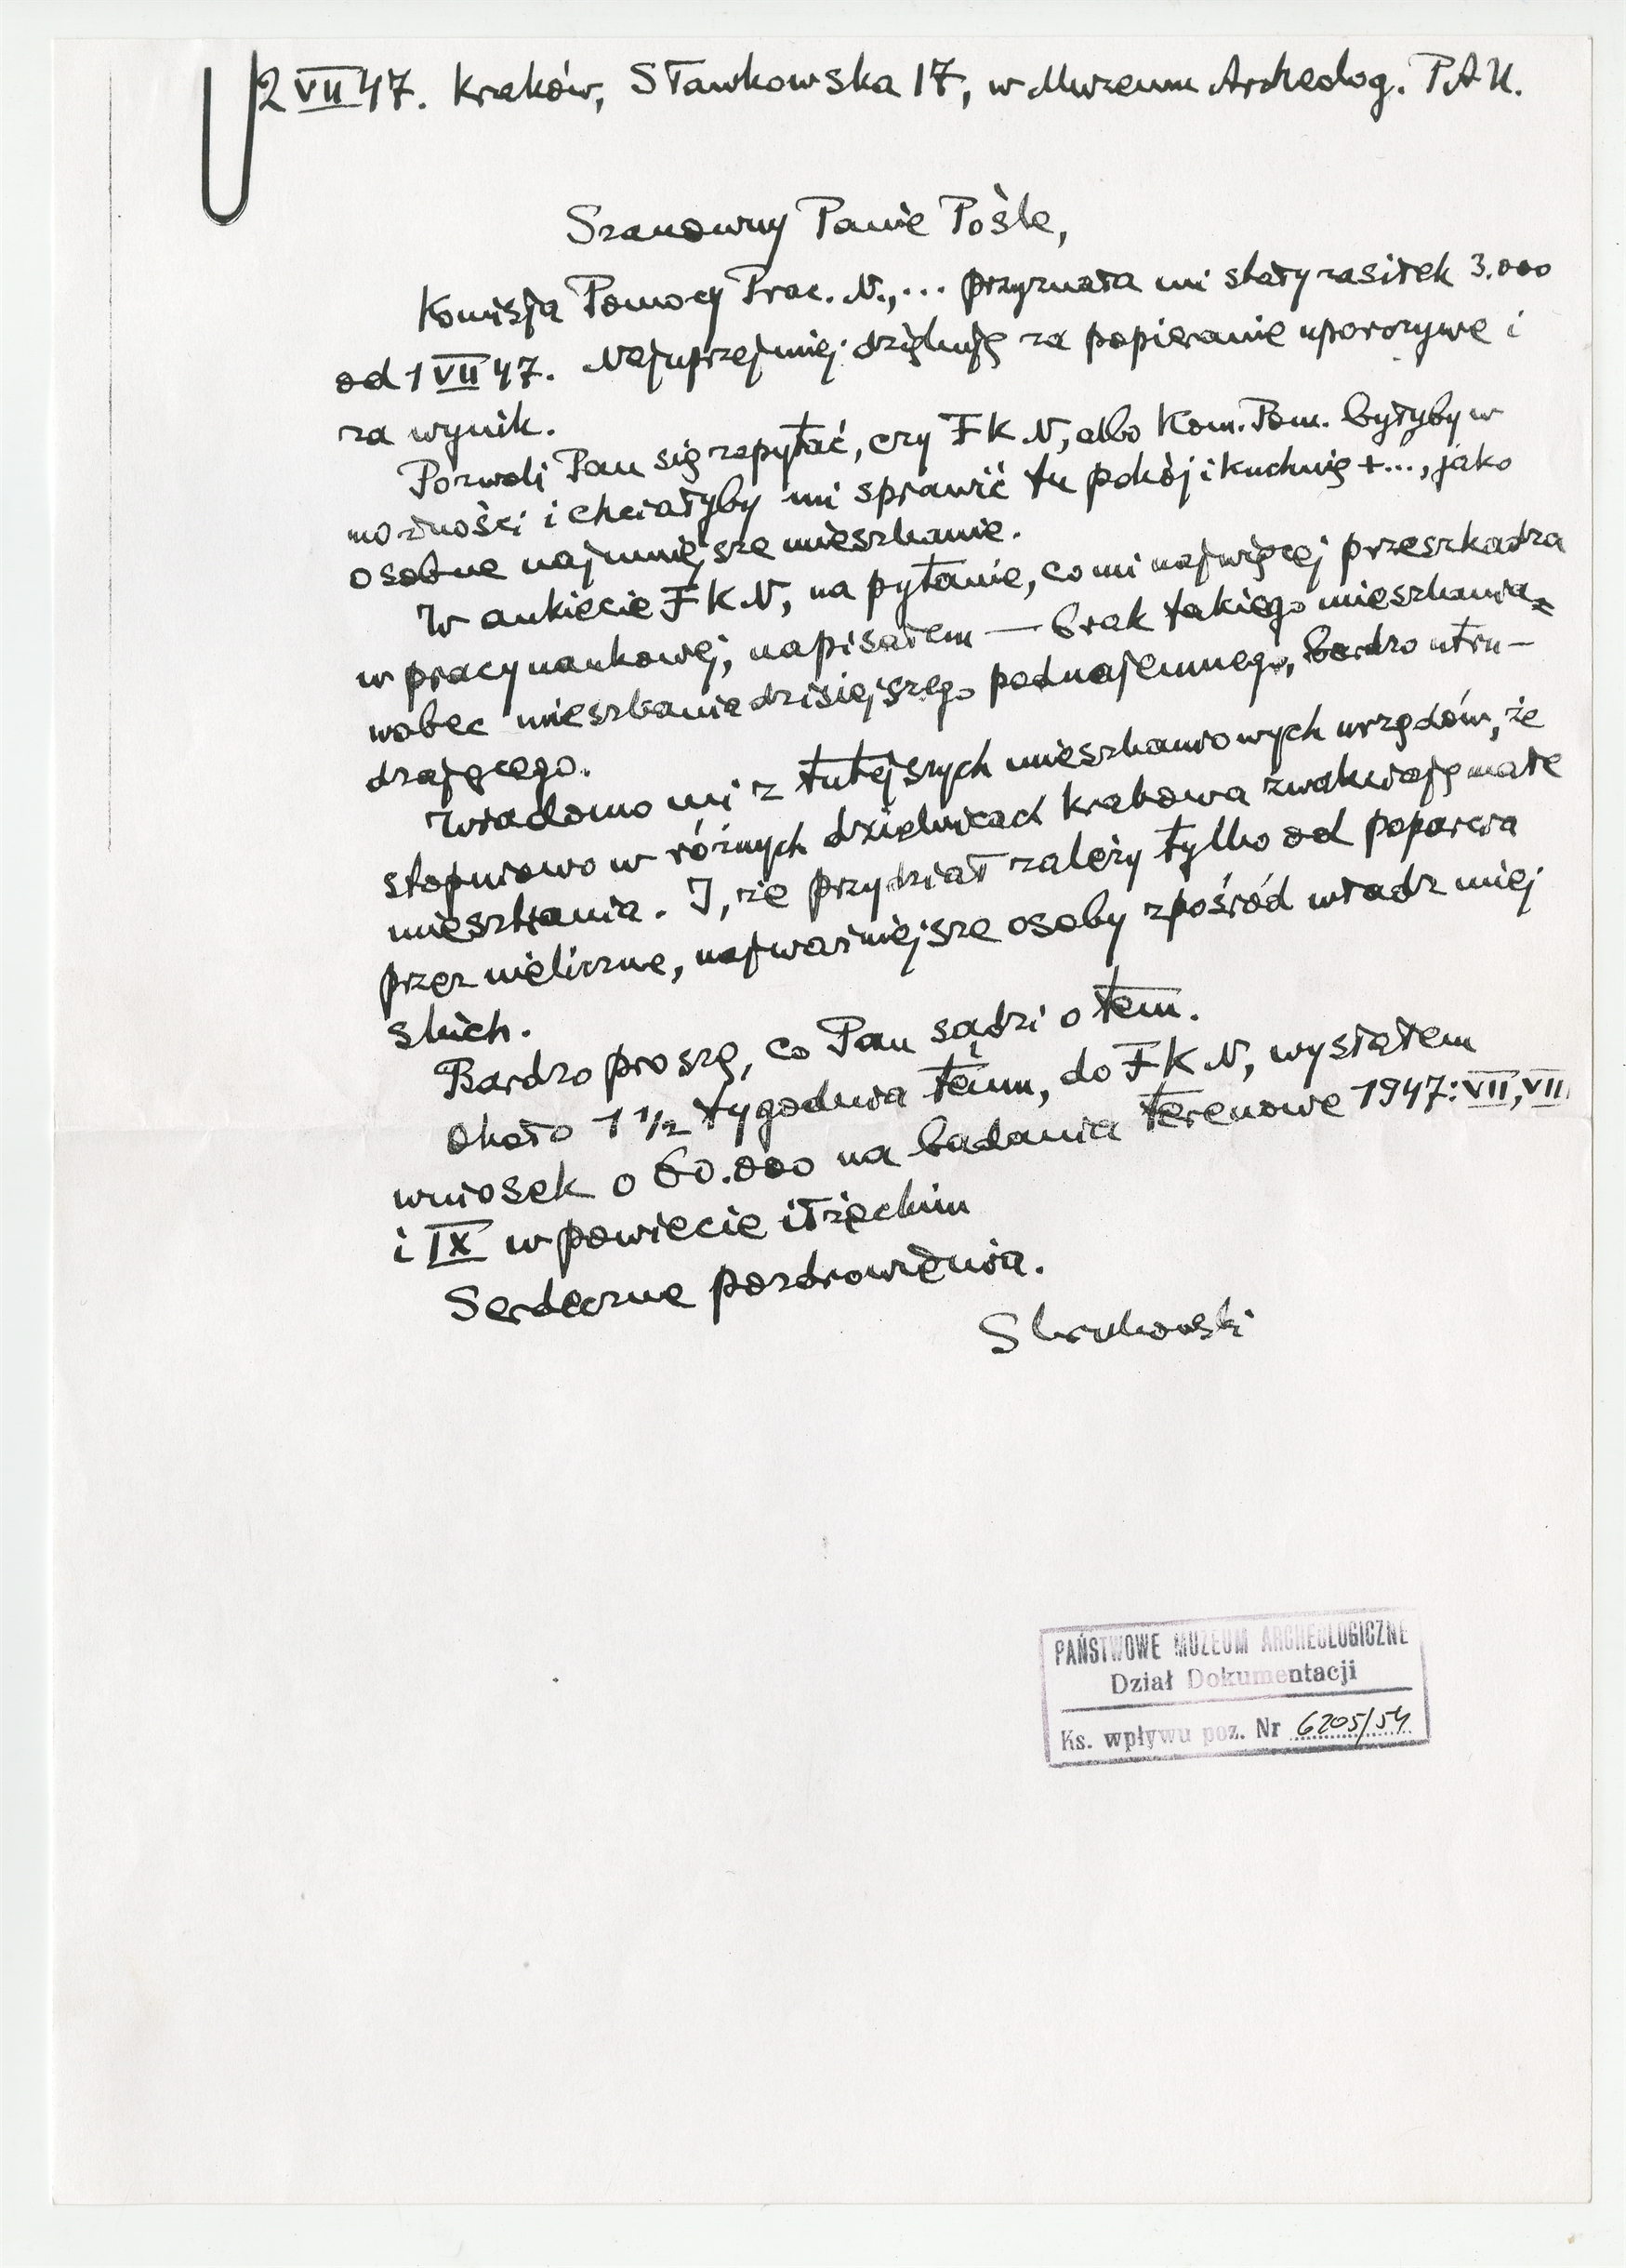 2 VII 47. Kraków, Sławkowska 17, w Muzeum Archeolog. P.A.U.
Szanowny Panie Pośle,
Komisja Pomocy Prac. N., ... przyznała mi stały zasiłek 3.000
od 1 VII 47. Najuprzejmiej dziękuję za popieranie uporczywe i
za wynik.
Pozwoli Pan się zapytać, czy FKN, albo Kom. Pom. byłyby w
możności i chciałyby mi sprawić tu pokój i kuchnię +..., jako
osobne najmniejsze mieszkanie.
W ankiecie FKN, na pytanie, co mi najwięcej przeszkadza
w pracy naukowej, napisałem — brak takiego mieszkania,
wobec mieszkania dzisiejszego podnajemnego, bardzo utru-
dzającego.
Wiadomo mi z tutejszych mieszkaniowych urzędów, że
stopniowo w różnych dzielnicach Krakowa zwakują małe
mieszkania. I, że przydział zależy tylko od poparcia
przez nieliczne, najważniejsze osoby zpośród władz miej
skich.
Bardzo proszę, co Pan sądzi o tem.
Około 1 1/2 tygodnia temu, do FKN, wysłałem
wniosek o 60.000 na badania terenowe 1947: VII, VII
i IX w powiecie iłżeckim
Serdeczne pozdrowienia.
SKrukowski
PAŃSTWOWE MUZEUM ARCHEOLOGICZNE
Dział Dokumentacji
Ks. wpływu poz. Nr 6205/54